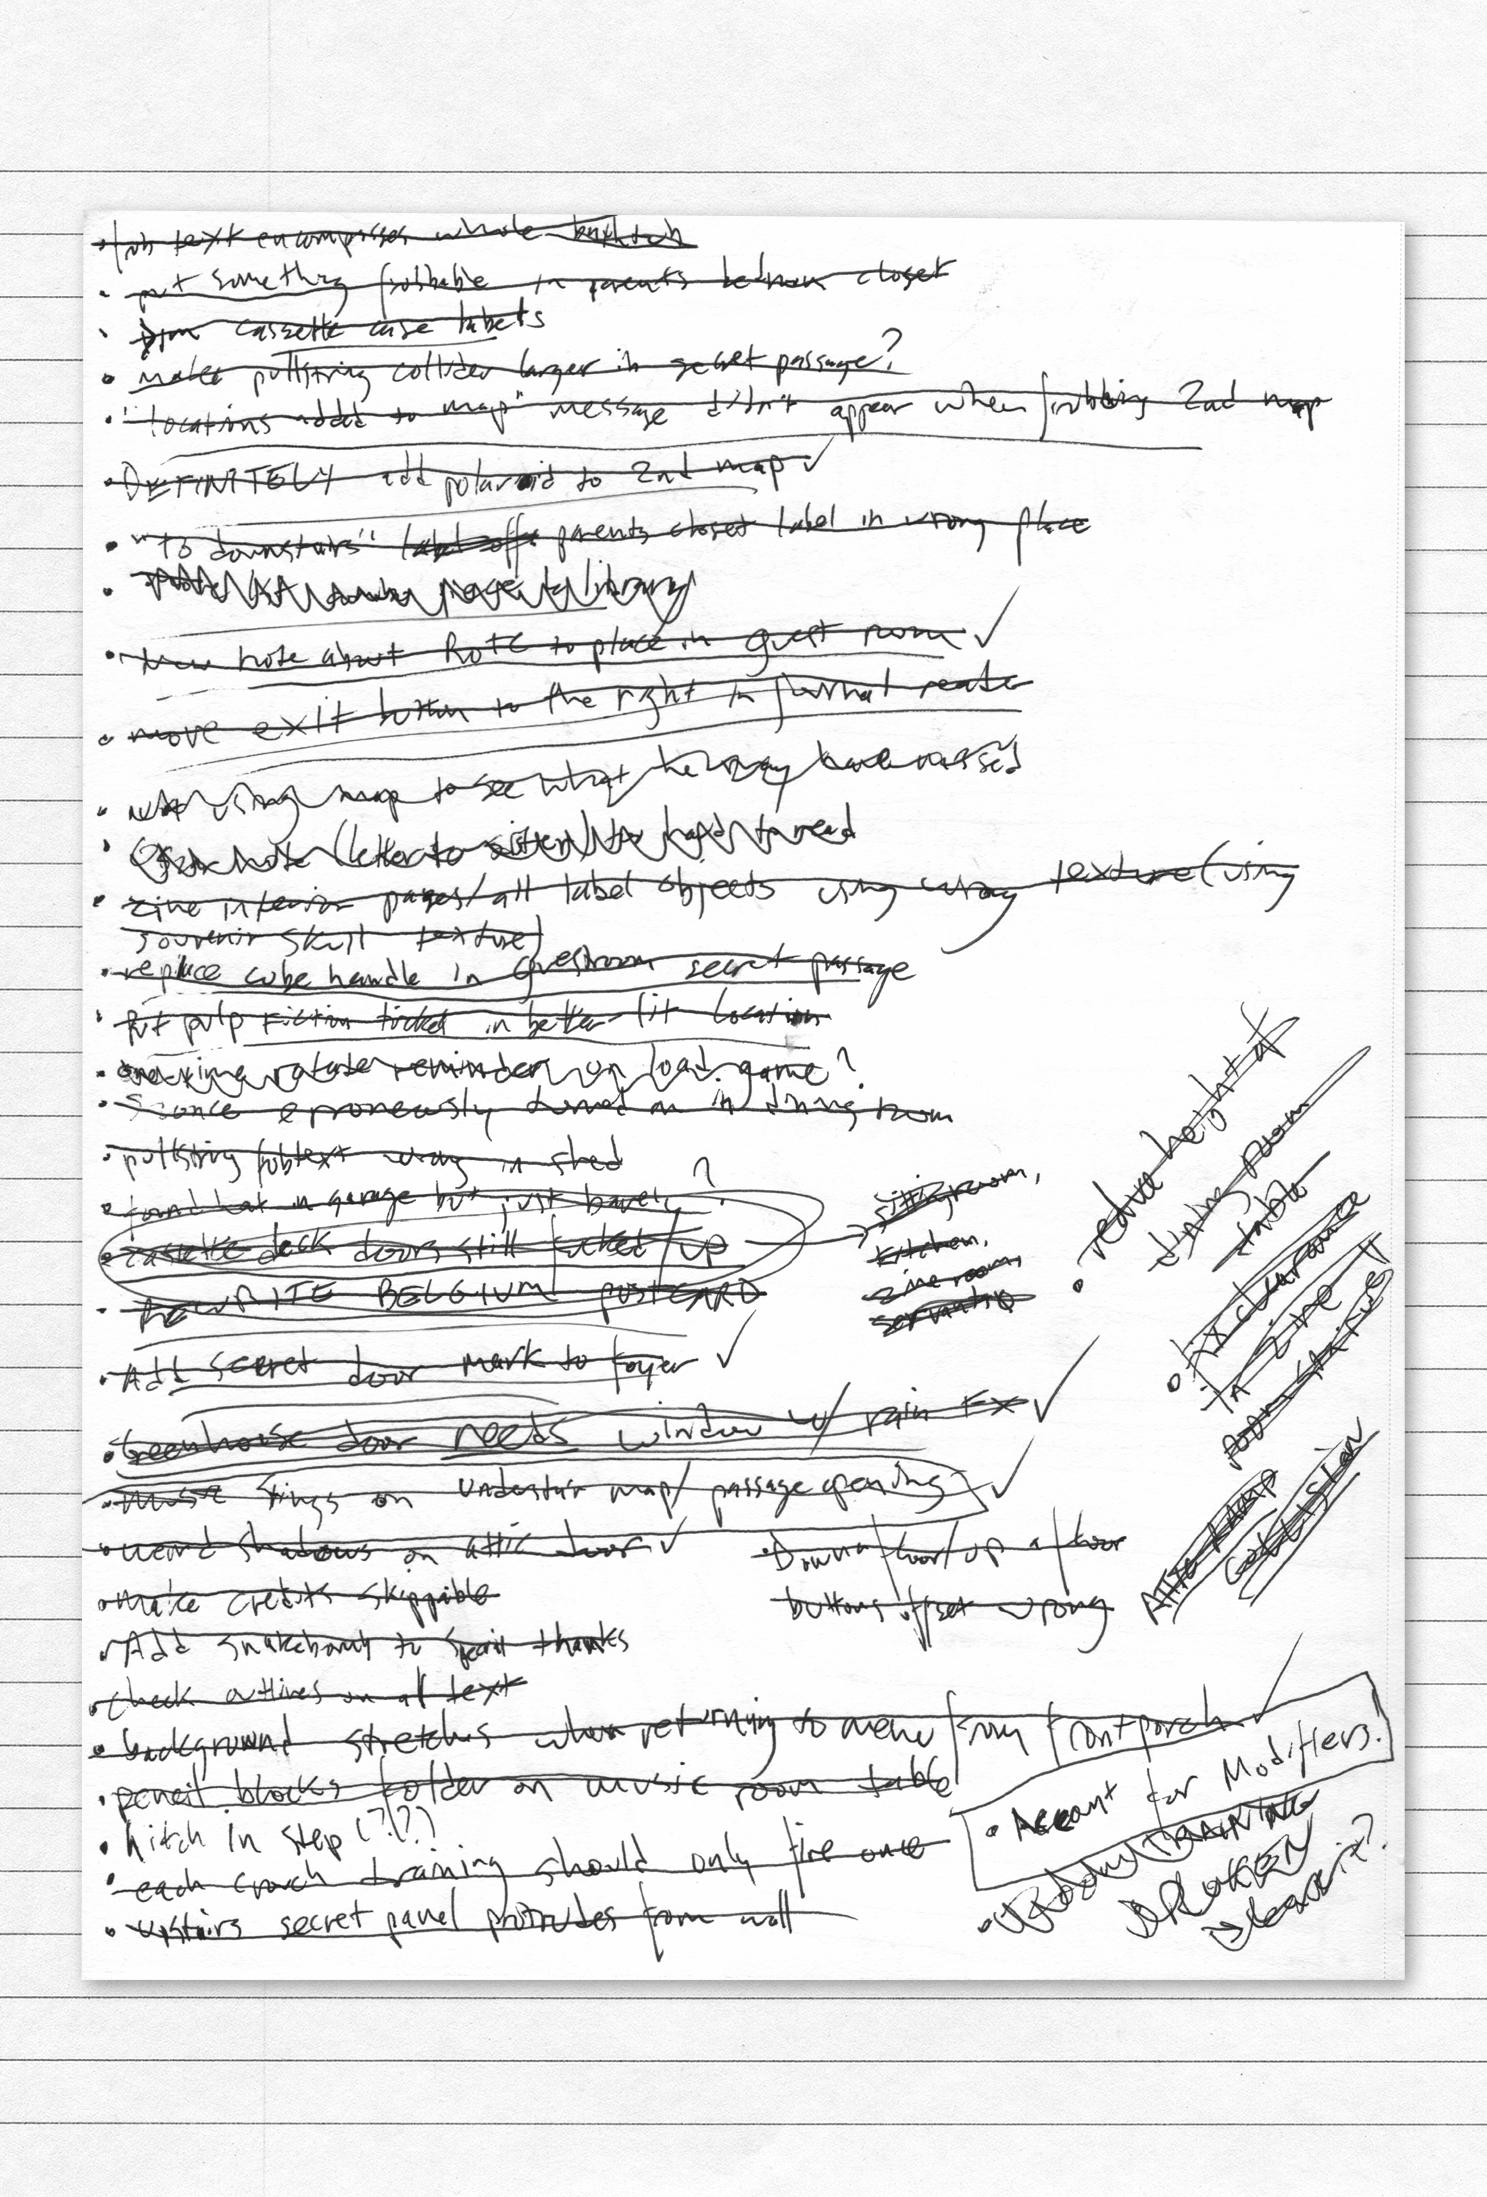 • frob text encompasses whole bathtub
• put something frobbable in parents bedroom closet
• trim cassette case labels
• make pullstring collider larger in secret passage?
• "locations added to map" message didn't appear when frobbing 2nd map
• DEFINITELY add polaroid to 2nd map ✓
• "To downstairs" parents closet label in wrong place
• page to library
• New note about ROTC to place in guest room ✓
• move exit button to the right in journal reader
• using map to see what he may have missed
• note (letter to sister) hard to read
• zine interior pages/all label objects using wrong texture (using
souvenir skull texture)
• replace cube handle in guestroom secret passage
• Put pulp fiction ticket in better-lit location
• rotate reminder on load game?
• Sconce erroneously turned on in dining room
• pullstring frobtext wrong in shed
• found hat in garage but just barely?
• cassette deck doors still fucked up
sitting room,
kitchen,
zine room,
• REWRITE BELGIUM POSTCARD
• Add secret door mark to foyer ✓
• Greenhouse door needs window w/ rain FX ✓
• music stings on understair map/passage opening ✓
• weird shadows on attic door ✓
• make credits skippable
• Add snakebomb to special thanks
• check outlines on all text
• background stretches when returning to menu from front porch ✓
• pencil blocks folder on music room table
• hitch in step (?!?)
• each crouch training should only fire once
• upstairs secret panel protrudes from wall
• reduce height of
dining room
table
• fix clearance
in zine
room
Attic RAMP
collision
• Down a floor/up a floor
buttons offset wrong
• Account for Modifiers!
TRAINING
BROKEN